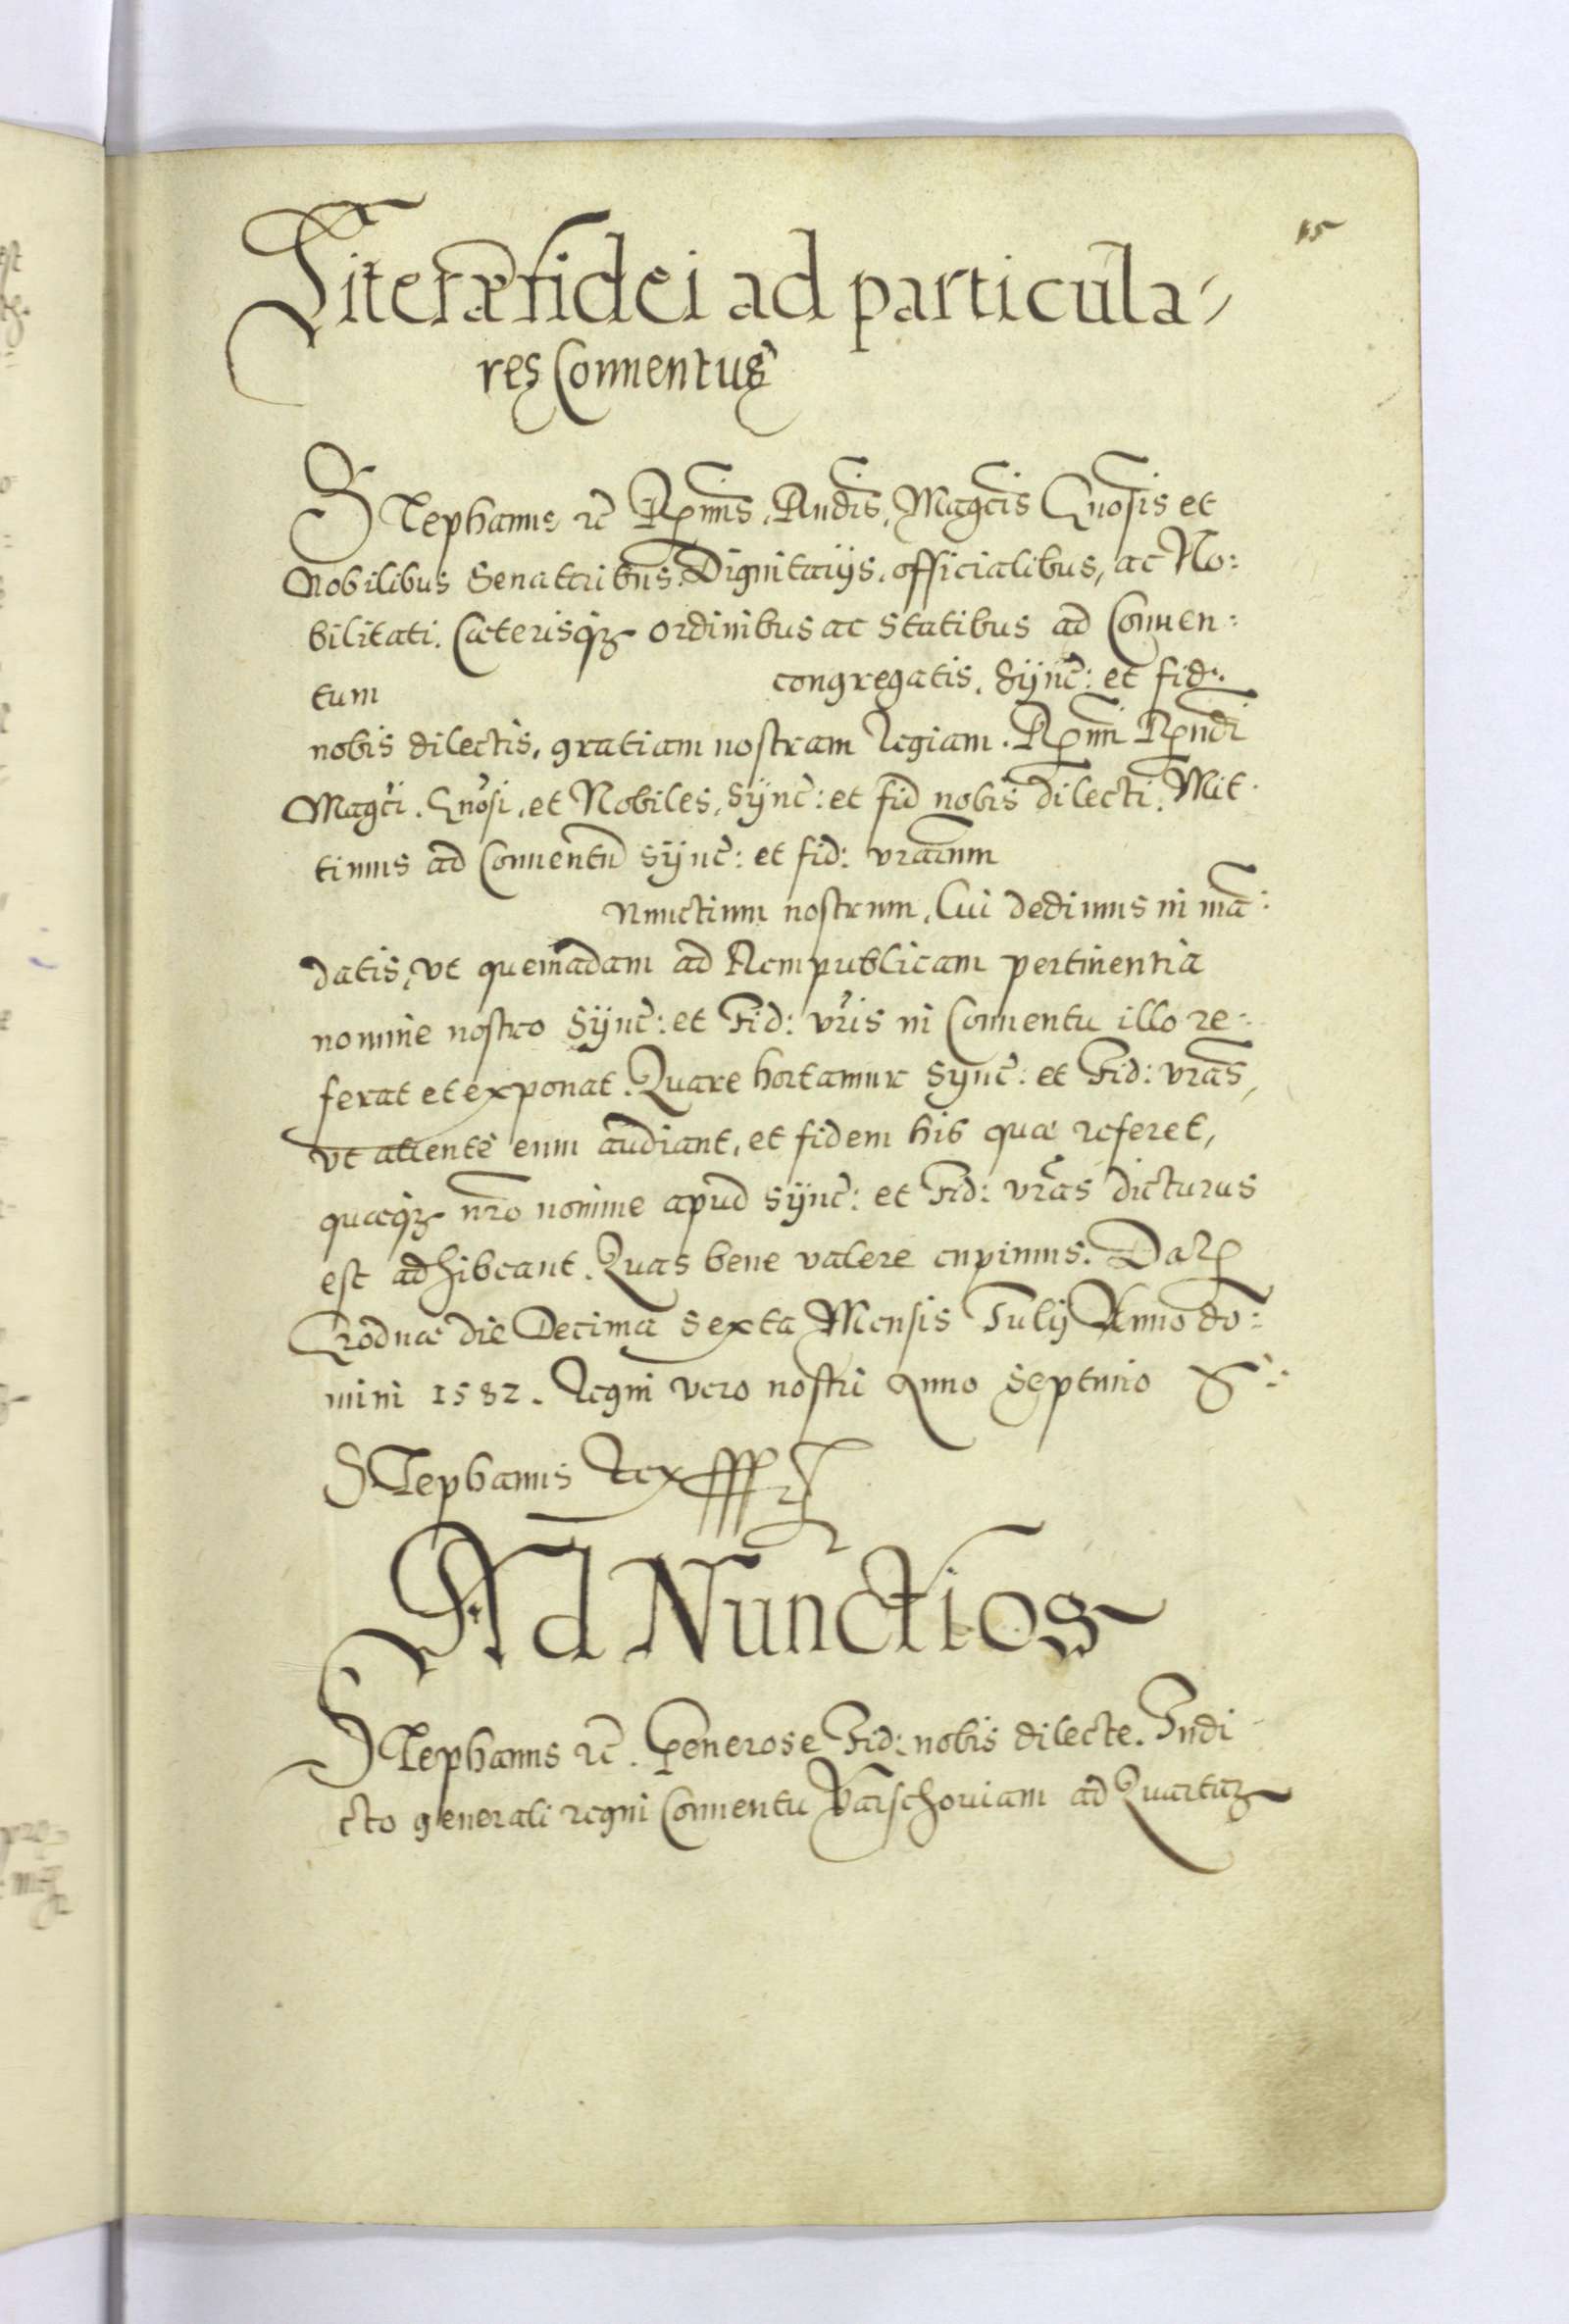 15
Literæ fidei ad particula-
res Conuentus
Stephanus etc̃ Rp̃mis, Rñdis, Mag̃cis G̃nosis et
Nobilibus Senatoribus. Dignitarijs, officialibus, ac No:
bilitati. Cæterisqz ordinibus ac statibus ad Conuen:
tum congregatis. Synč: et fid:
nobis dilectis, gratiam nostram Regiam. Rp̃mi Rp̃ndi
Mag̃ci. G̃nosi, et Nobiles, Synč: et fid nobis dilecti. Mit
timus ad Conuentũ Synč: et fid: vr̃arum
Nunctium nostrum, Cui dedimus in mã:
datis, vt quemadam ad Rempublicam pertinentia
nomine nostro Synč: et Fid: vr̃is in Conuentu illo re:
ferat et exponat. Quare hortamur Synč: et Fid: vr̃as,
vt attentè eum audiant, et fidem his quæ referet,
quæqz nr̃o nomine apud Synč: et Fid: vr̃as dicturus
est adhibeant. Quas bene valere cupimus. Dat̃
Grodnæ die Decima Sexta Mensis Iulij Anno do:
mini 1582. Regni vero nostri Anno Septimo
Stephanus Rex
Ad Nunctios
Stephanus etc̃. Generose Fid: nobis dilecte. Indi
cto generali regni Conuentu Varschouiam ad Quartaz